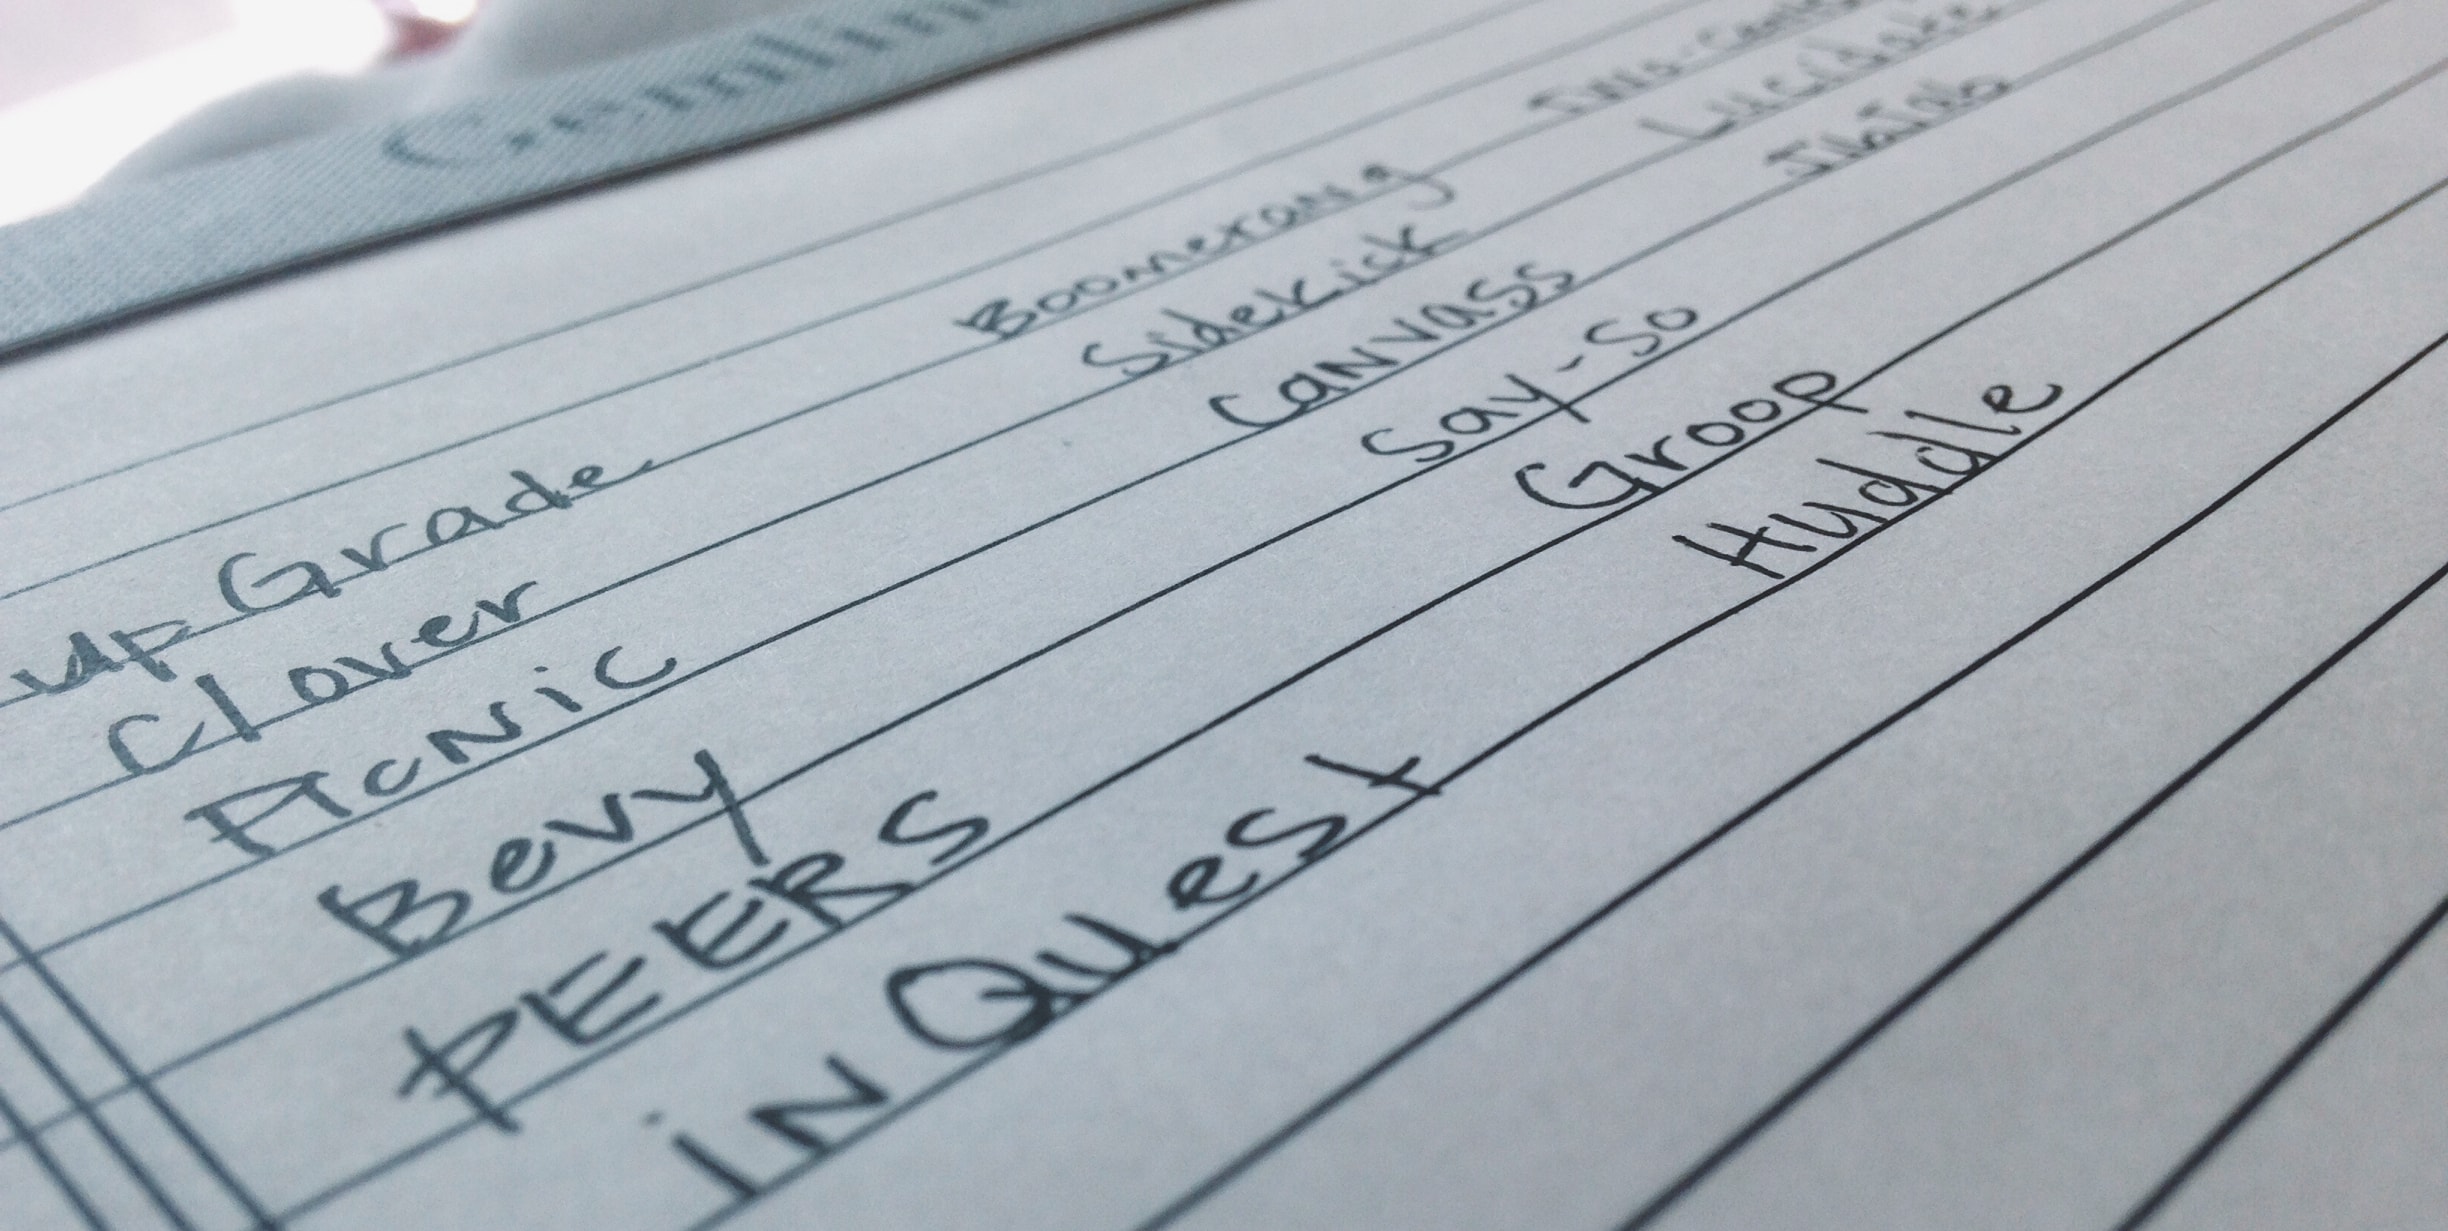 upGrade Boomerang
Clover Sidekick
Picnic Canvass
Bevy Say-So
PEERS Groop
inQuest Huddle